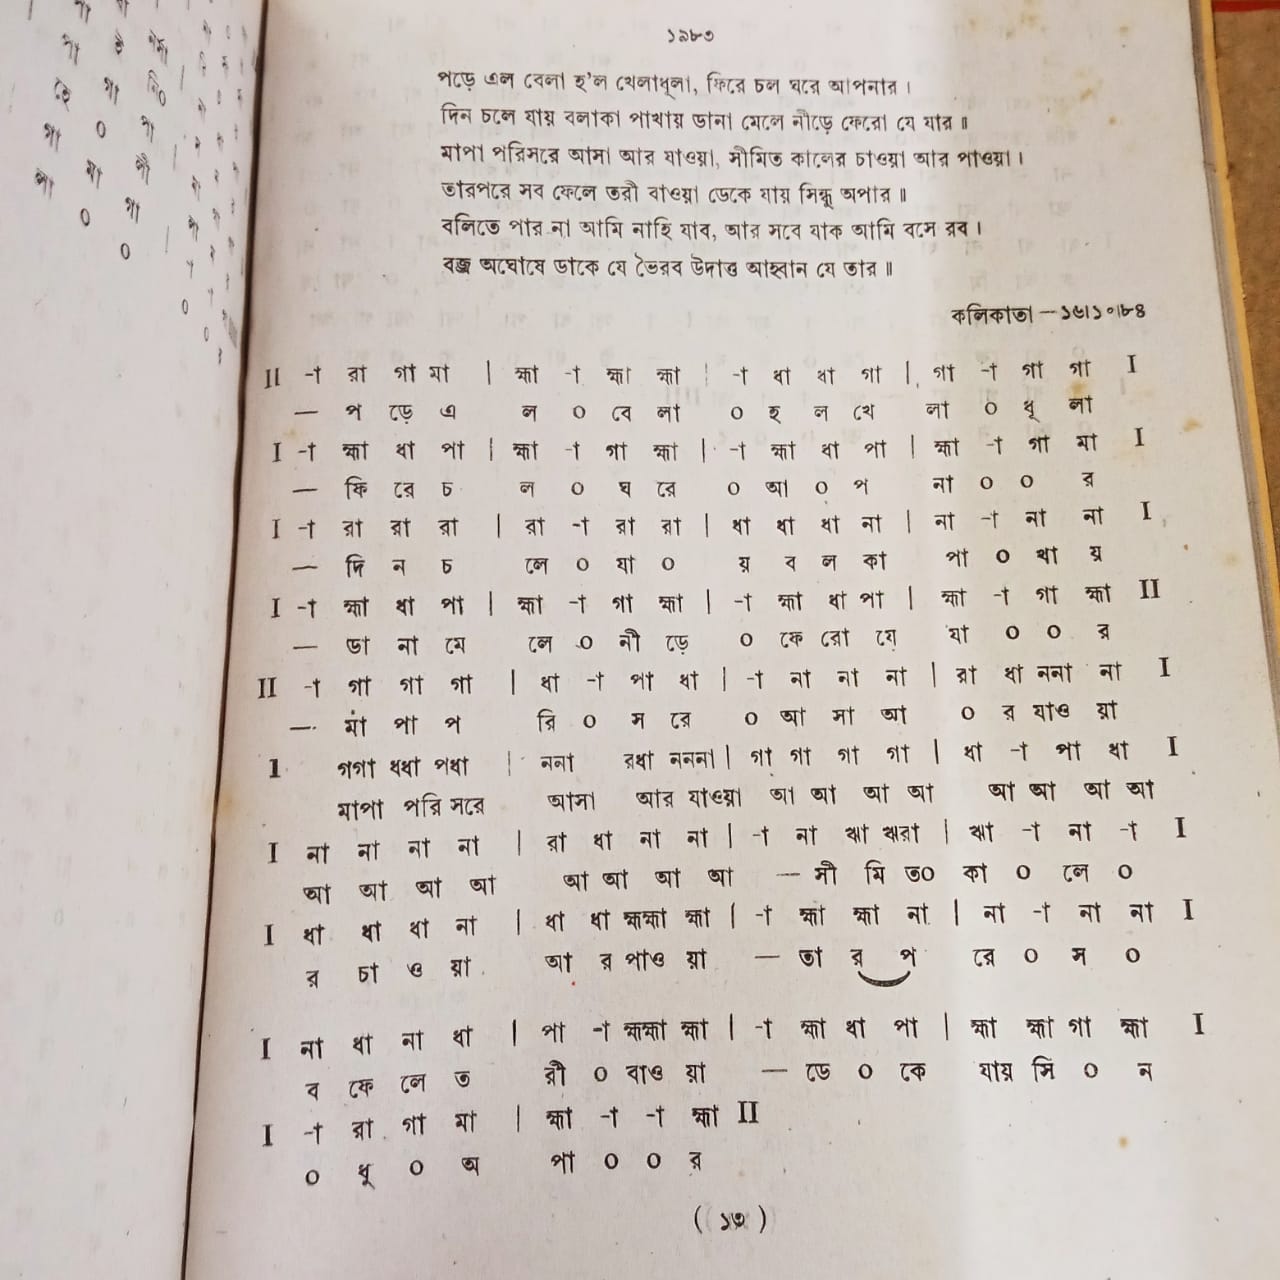 ১৯৮৩
পড়ে এল বেলা হ'ল খেলাধূলা, ফিরে চল ঘরে আপনার ।
দিন চলে যায় বলাকা পাখায় ডানা মেলে নীড়ে ফেরো যে যার ॥
মাপা পরিসরে আসা আর যাওয়া, সীমিত কালের চাওয়া আর পাওয়া ।
তারপরে সব ফেলে তরী বাওয়া ডেকে যায় সিন্ধু অপার ॥
বলিতে পার না আমি নাহি যাব, আর সবে যাক আমি বসে রব ।
বজ্র অঘোষে ডাকে যে ভৈরব উদাত্ত আহ্বান যে তার ॥
কলিকাতা — ১৬।১০।৮৪
II -া রা গা মা | ক্ষা -া ক্ষা ক্ষা | -া ধা ধা গা | গা -া গা গা I
— প ড়ে এ ল ০ বে লা ০ হ ল খে লা ০ ধূ লা
I -া ক্ষা ধা পা | ক্ষা -া গা ক্ষা | -া ক্ষা ধা পা | ক্ষা -া গা মা I
— ফি রে চ ল ০ ঘ রে ০ আ ০ প না ০ ০ র
I -া রা রা রা | রা -া রা রা | ধা ধা ধা না | না -া না না I
— দি ন চ লে ০ যা ০ য় ব ল কা পা ০ খা য়
I -া ক্ষা ধা পা | ক্ষা -া গা ক্ষা | -া ক্ষা ধা পা | ক্ষা -া গা ক্ষা II
— ডা না মে লে ০ নী ড়ে ০ ফে রো যে যা ০ ০ র
II -া গা গা গা | ধা -া পা ধা | -া না না না | রা ধা ননা না I
— মা পা প রি ০ স রে ০ আ সা আ ০ র যাও য়া
I গগা ধধা পধা | ননা রধা নননা | গা গা গা গা | ধা -া পা ধা I
মাপা পরি সরে আসা আর যাওয়া আ আ আ আ আ আ আ আ
I না না না না | রা ধা না না | -া না ঋা ঋরা | ঋা -া না -া I
আ আ আ আ আ আ আ আ — সী মি ত০ কা ০ লে ০
I ধা ধা ধা না | ধা ধা ক্ষক্ষা ক্ষা | -া ক্ষা ক্ষা না | না -া না না I
র চা ও য়া আ র পাও য়া — তা র প রে ০ স ০
I না ধা না ধা | পা -া ক্ষক্ষা ক্ষা | -া ক্ষা ধা পা | ক্ষা ক্ষা গা ক্ষা I
ব ফে লে ত রী ০ বাও য়া — ডে ০ কে যায় সি ০ ন
I -া রা গা মা | ক্ষা -া -া ক্ষা II
০ ধূ ০ অ পা ০ ০ র
( ১৩ )